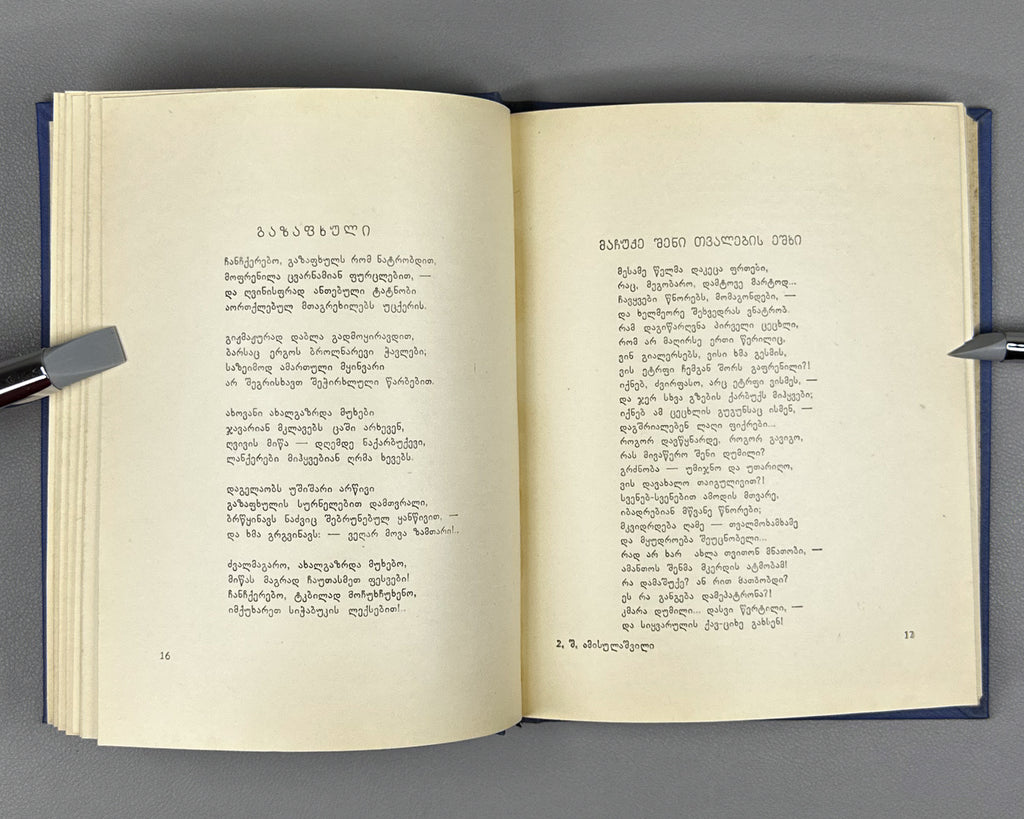 გაზაფხული
ჩანჩქერებო, გაზაფხულს რომ ნატრობდით,
მოფრენილა ცვარნამიან ფურცლებით, —
და ღვინისფრად ანთებული ტატნობი
აორთქლებულ მთაგრეხილებს უცქერის.
გიჟმაჟურად დაბლა გადმოყირავდით,
ბარსაც ერგოს ბროლნარევი ჭავლები;
საზეიმოდ ამართული მყინვარი
არ შეგრისხავთ შეჭირხლული წარბებით.
ახოვანი ახალგაზრდა მუხები
ჯავარიან მკლავებს ცაში არხევენ,
ღვივის მიწა — დღემდე ნაქარბუქევი,
ლანქერები მიჰყვებიან ღრმა ხევებს.
დაგელაობს უშიშარი არწივი
გაზაფხულის სურნელებით დამთვრალი,
ბრწყინავს ნაძვიც შებრუნებულ ყანწივით, —
და ხმა გრგვინავს: — ვეღარ მოვა ზამთარი!..
ძვალმაგარო, ახალგაზრდა მუხებო,
მიწას მაგრად ჩაუთასმეთ ფესვები!
ჩანჩქერებო, ტკბილად მოჩუხჩუხენო,
იმქუხარეთ სიჭაბუკის ლექსებით!..
16
მაჩუქე შენი თვალების ეშხი
მესამე წელმა დაკეცა ფრთები,
რაც, მეგობარო, დამტოვე მარტოდ...
ჩავყვები წნორებს, მომაგონდები, —
და ხელმეორე შეხვედრას ვნატრობ.
რამ დაგიწარღვნა პირველი ცეცხლი,
რომ არ მაღირსე ერთი წერილიც,
ვინ გიალერსებს, ვისი ხმა გესმის,
ვის ეტრფი ჩემგან შორს გაფრენილი?!
იქნებ, ძვირფასო, არც ეტრფი ვისმეს, —
და ჯერ სხვა გზების ქარბუქს მიჰყვები;
იქნებ ამ ცეცხლის გუგუნსაც ისმენ, —
დაგშრიალებენ ლაღი ფიქრები...
როგორ დავწყნარდე, როგორ გავიგო,
რას მივაწერო შენი დუმილი?
გრძნობა — უმიჯნო და უთარიღო,
ვის დავახალო თაიგულივით?!
სვენებ-სვენებით ამოდის მთვარე,
იბადრებიან მწვანე წნორები;
მკვიდრდება ღამე — თვალმოხამხამე
და მყუდროება შეუცნობელი...
რად არ ხარ ახლა თვითონ მნათობი, —
ამანთოს შენმა მკერდის ატმობამ!
რა დამაშუქე? ან რით მათბობდი?
ეს რა განგება დამეპატრონა?!
კმარა დუმილი... დასვი წერტილი, —
და სიყვარულის ქავ-ციხე გახსენ!
2, შ, ამისულაშვილი
17